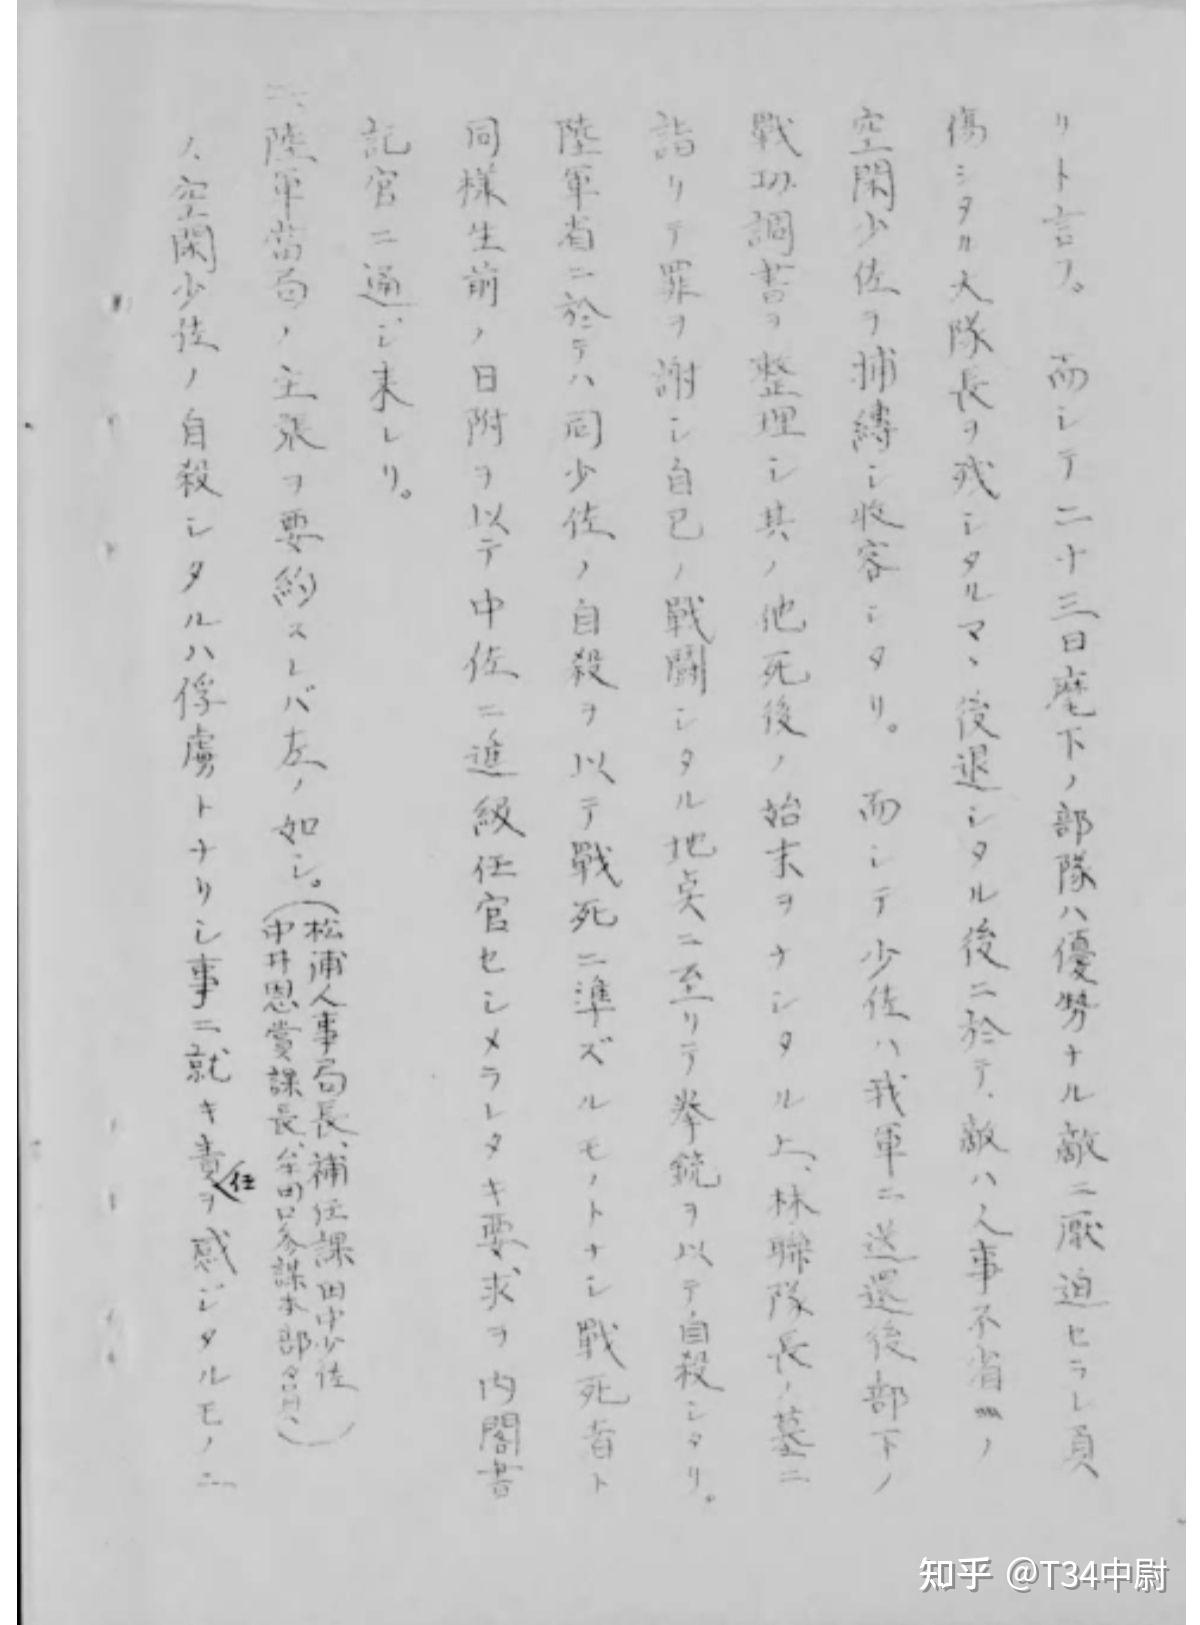 リト言フ。 而シテ二十三日麾下ノ部隊ハ優勢ナル敵ニ厭迫セラレ負
傷シタル大隊長ヲ残シタルマヽ後退シタル後ニ於テ、敵ハ人事不省ノ
空閑少佐ヲ捕縛シ收容シタリ。 而シテ少佐ハ我軍ニ送還後部下ノ
戰功調書ヲ整理シ其ノ他死後ノ始末ヲナシタル上、林聯隊長ノ墓ニ
詣リテ罪ヲ謝シ自己ノ戰鬪シタル地点ニ至リテ拳銃ヲ以テ自殺シタリ。
陸軍省ニ於テハ同少佐ノ自殺ヲ以テ戰死ニ準ズルモノトナシ戰死者ト
同樣生前ノ日附ヲ以テ中佐ニ進級任官セシメラレタキ要求ヲ内閣書
記官ニ通ジ来レリ。
二、陸軍當局ノ主張ヲ要約スレバ左ノ如シ。
(松浦人事局長、補任課田中少佐
中井恩賞課長、牟田口参謀本部)
ハ、空閑少佐ノ自殺シタルハ俘虜トナリシ事ニ就キ責任ヲ感ジタルモノニ
知乎 @T34中尉